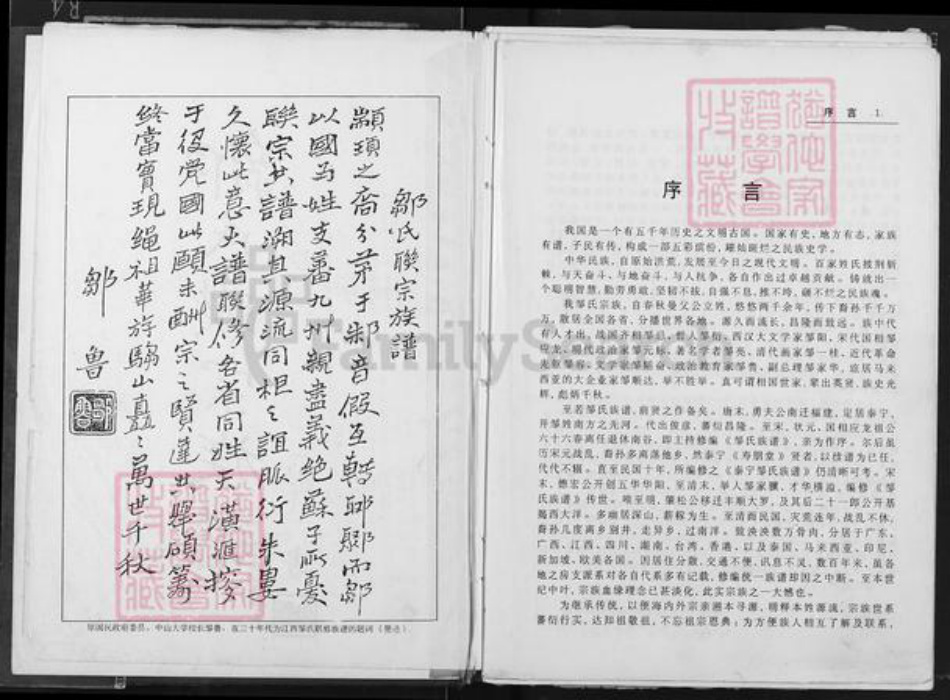 鄒氏聯宗族譜
顓頊之裔分茅于邾音假互轉耶鄹而鄒
以國為姓支蕃九州親盡義绝蘇子所憂
聯宗共譜溯其源流同根之誼脈衍朱婁
久懷此意大譜聯修各省同姓天潢滙
于役党國此願未酬宗之賢達共舉碩籌
終當實現绳祖華旂騶山矗矗萬世千秋
鄒 魯
原国民政府委员、中山大学校长邹鲁，在三十年代为江西邹氏联宗族谱的题词
序 言 1
序 言
我国是一个有五千年历史之文明古国。国家有史，地方有志，家族
有谱，子民有传，构成一部五彩缤纷，璀灿斑烂之民族史学。
中华民族，自原始洪荒，发展至今日之现代文明。百家姓氏披荆斩
棘，与天奋斗、与地奋斗、与人抗争，各自作出过卓越贡献。铸就出一
个聪明智慧，勤劳勇敢，坚韧不拔，自强不息，推不垮，砸不烂之民族魂。
我邹氏宗族，自春秋曼父公立姓，悠悠两千余年，传下裔孙千千万
万，散居全国各省，分播世界各地。源久而流长，昌隆而致远。族中代
有人才出，战国齐相邹忌，哲人邹衍，西汉大文学家邹阳，宋代国相邹
应龙，明代政治家邹元标，著名学者邹亮，清代画家邹一桂，近代革命
先驱邹容，文学家邹韬奋、政治教育家邹鲁、副总理邹家华，旅居马来
西亚的大企业家邹顺达，举不胜举。真可谓相国世家，辈出英贤，族史光
辉，彪炳千秋。
至若邹氏族谱，前贤之作备矣。唐末，勇夫公南迁福建，定居泰宁，
开邹姓南方之先河。代出俊彦，蕃衍昌隆。至宋，状元、国相应龙祖公
六十六春离任退休南谷，即主持修编《邹氏族谱》，亲为作序。尔后虽
历宋元战乱，裔孙多离荡他乡，然泰宁《寿朋堂》贤者，以续谱为已任，
代代不辍。直至民国十年，所编修之《泰宁邹氏族谱》仍清晰可考。宋
末，德宏公开创五华华阳，至清末，举人邹家骥，才华横溢，编修《邹
氏族谱》传世。唯至明，肇松公移迁丰顺大罗，及其后二十一郎公开基
揭西大洋。多幽居深山，薪稼为生。至清而民国，灾荒连年，战乱不休，
裔孙几度离乡别井，走异乡，过南洋。致泱泱数万骨肉，分居于广东、
广西、江西、四川、湖南、台湾、香港、以及泰国、马来西亚、印尼、
新加坡、欧美各国。因居住分散，交通不便，讯息不灵，数百年来，虽各
地之房支派系对各自代系多有记载，修编统一族谱却因之中断。至本世
纪中叶，宗族血缘理念已甚淡化，此实宗族之一大憾也。
为继承传统，以便海内外宗亲溯本寻源，明释本姓源流，宗族世系
蕃衍行实，达知祖敬祖，不忘祖宗恩典；为方便族人相互了解及联系，
FamilySearch